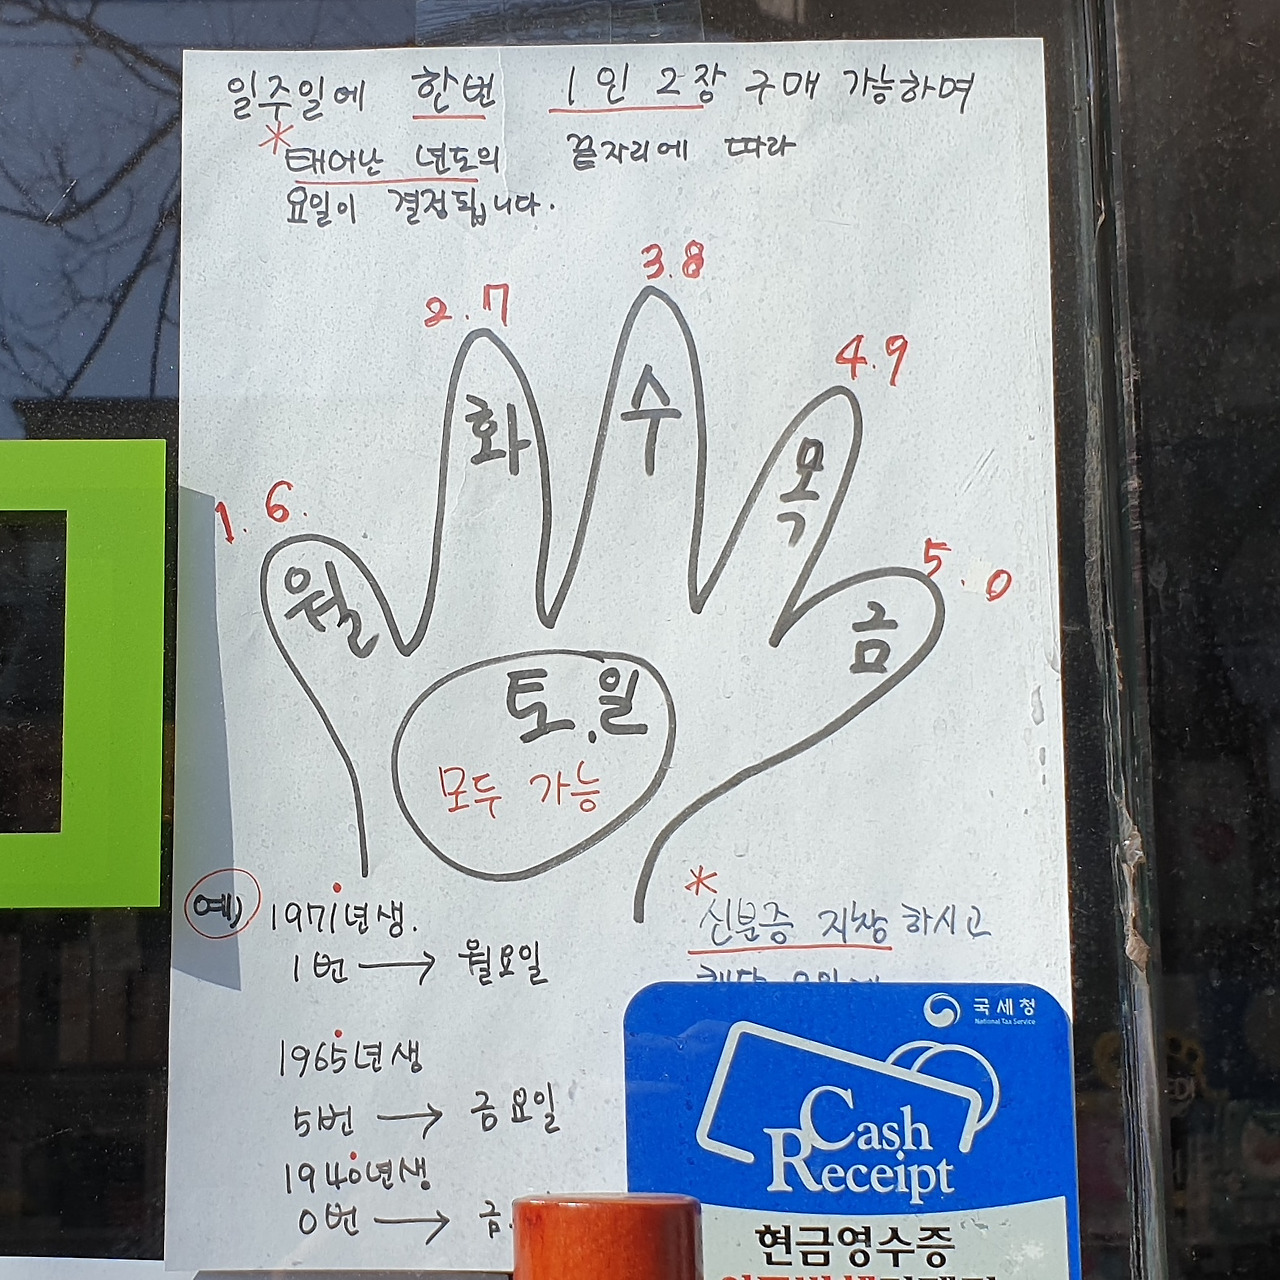 일주일에 한번 1인 2장 구매 가능하며
* 태어난 년도의 끝자리에 따라
요일이 결정됩니다.
3.8
2.7
4.9
1.6.
5.0
월
화
수
목
금
토.일
모두 가능
예)
1971년생.
1번 → 월요일
1965년생
5번 → 금요일
1940년생
0번 → 금
*
신분증 지참 하시고
해당 요일에
국세청
National Tax Service
Cash
Receipt
현금영수증